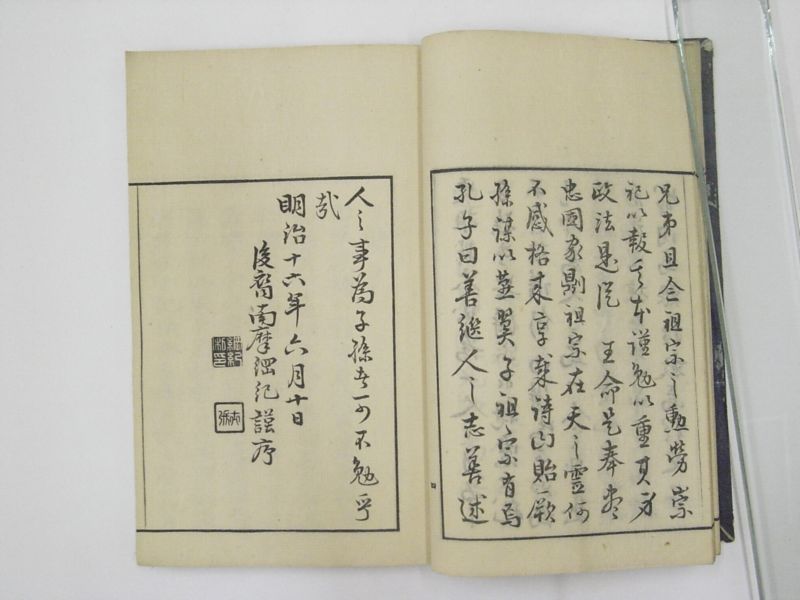 兄弟且念祖宗之勳勞崇
祀以報其本謹勉以重其身
政法是從王命是奉盡
忠國家則祖宗在天之靈何
不感格来享哉詩曰貽厥
孫謀以燕翼子祖宗有焉
孔子曰善繼人之志善述
人之事為子孫者可不勉乎
哉
明治十六年六月十日
後裔南摩綱紀謹序